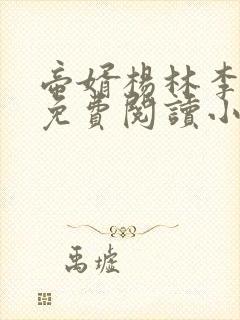 帝婿楊林李
免費閱讀小
禹墟